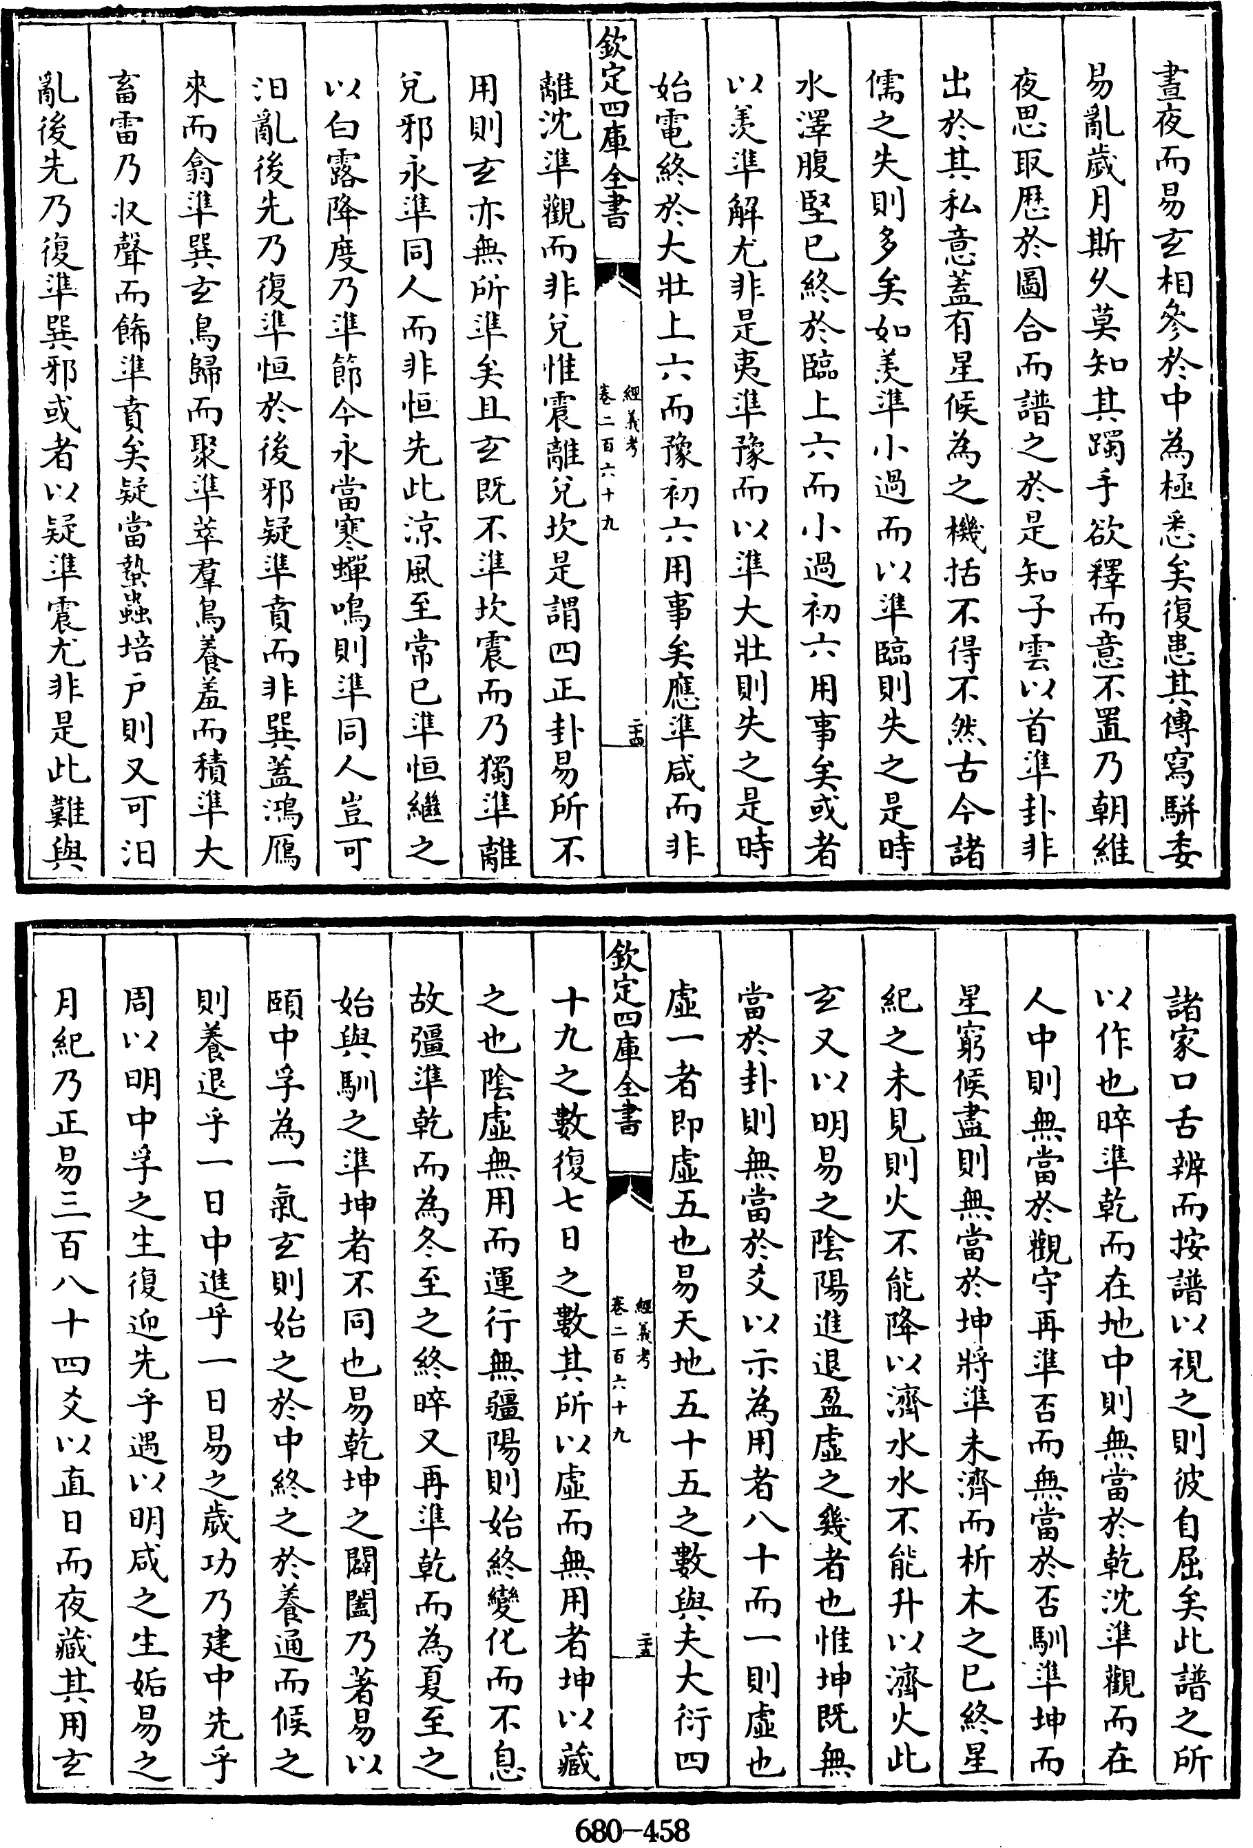 晝夜而易玄相參於中為極悉矣復患其傳寫駢委
易亂歲月斯久莫知其躅手欲釋而意不置乃朝維
夜思取歷於圖合而譜之於是知子雲以首準卦非
出於其私意蓋有星候為之機括不得不然古今諸
儒之失則多矣如羨準小過而以準臨則失之是時
水澤腹堅已終於臨上六而小過初六用事矣或者
以羨準解尤非是夷準豫而以準大壯則失之是時
始電終於大壯上六而豫初六用事矣應準咸而非
欽定四庫全書
經義考
卷二百六十九
二十四
離沈準觀而非兌惟震離兌坎是謂四正卦易所不
用則玄亦無所準矣且玄既不準坎震而乃獨準離
兌邪永準同人而非恒先此涼風至常已準恒繼之
以白露降度乃準節今永當寒蟬鳴則準同人豈可
汨亂後先乃復準恒於後邪疑準賁而非巽蓋鴻鴈
來而翕準巽玄鳥歸而聚準萃羣鳥養羞而積準大
畜雷乃收聲而飾準賁矣疑當蟄蟲培戶則又可汨
亂後先乃復準巽邪或者以疑準震尤非是此難與
諸家口舌辨而按譜以視之則彼自屈矣此譜之所
以作也晬準乾而在地中則無當於乾沈準觀而在
人中則無當於觀守再準否而無當於否馴準坤而
星窮候盡則無當於坤將準未濟而析木之已終星
紀之未見則火不能降以濟水水不能升以濟火此
玄又以明易之陰陽進退盈虛之幾者也惟坤既無
當於卦則無當於爻以示為用者八十而一則虛也
虛一者即虛五也易天地五十五之數與夫大衍四
欽定四庫全書
經義考
卷二百六十九
二十五
十九之數復七日之數其所以虛而無用者坤以藏
之也陰虛無用而運行無疆陽則始終變化而不息
故彊準乾而為冬至之終晬又再準乾而為夏至之
始與馴之準坤者不同也易乾坤之闢闔乃著易以
頤中孚為一氣玄則始之於中終之於養通而候之
則養退乎一日中進乎一日易之歲功乃建中先乎
周以明中孚之生復迎先乎遇以明咸之生姤易之
月紀乃正易三百八十四爻以直日而夜藏其用玄
680-458